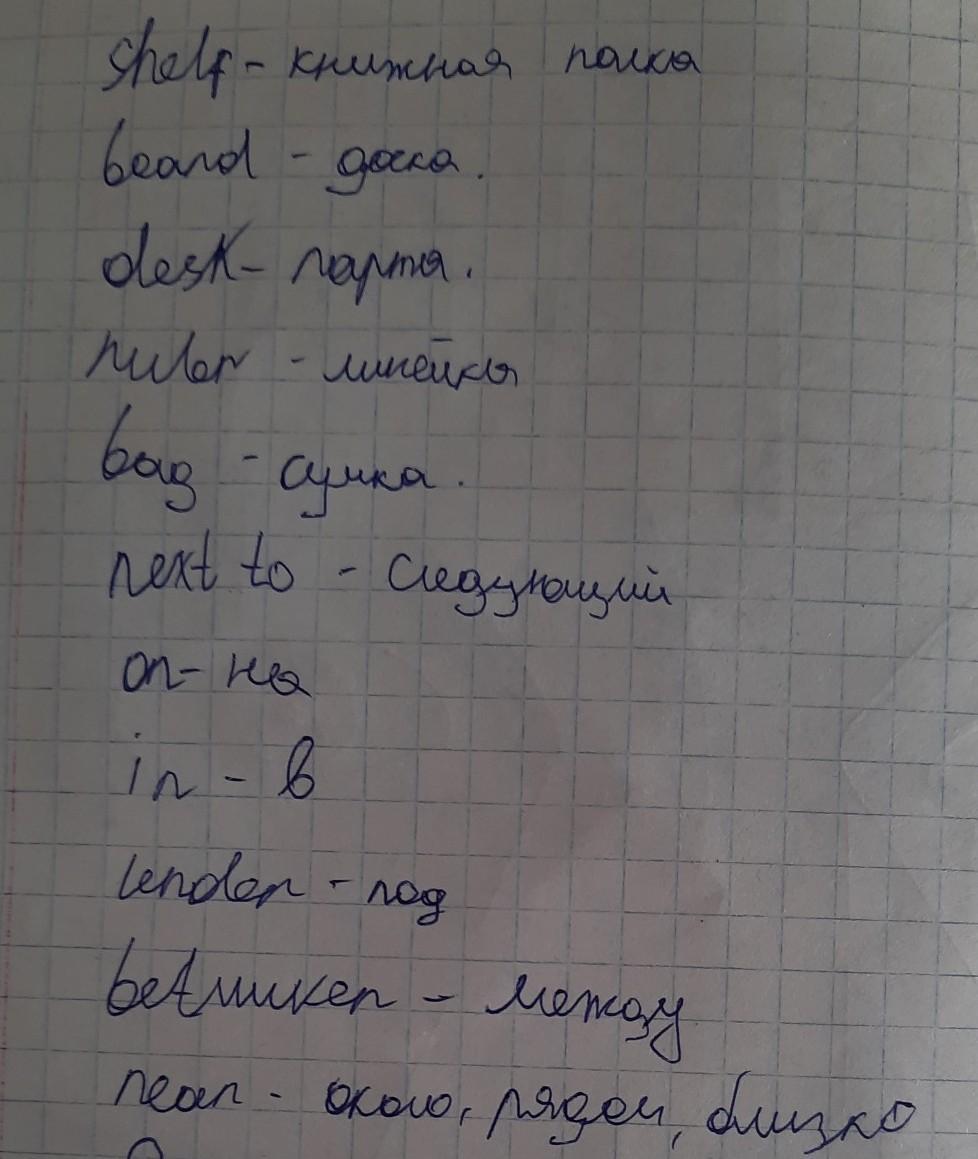 shelf - книжная полка
board - доска.
desk - парта.
ruler - линейка
bag - сумка.
next to - следующий
on - на
in - в
under - под
between - между
near - около, рядом, близко